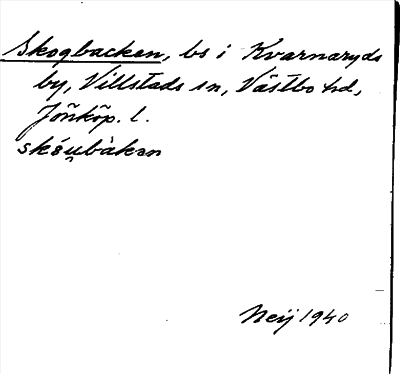 Skogbacken, bs i Kvarnaryds
by, Villstads sn, Västbo hd,
Jönköp. l.
skóu̯bàkən
Neij 1940